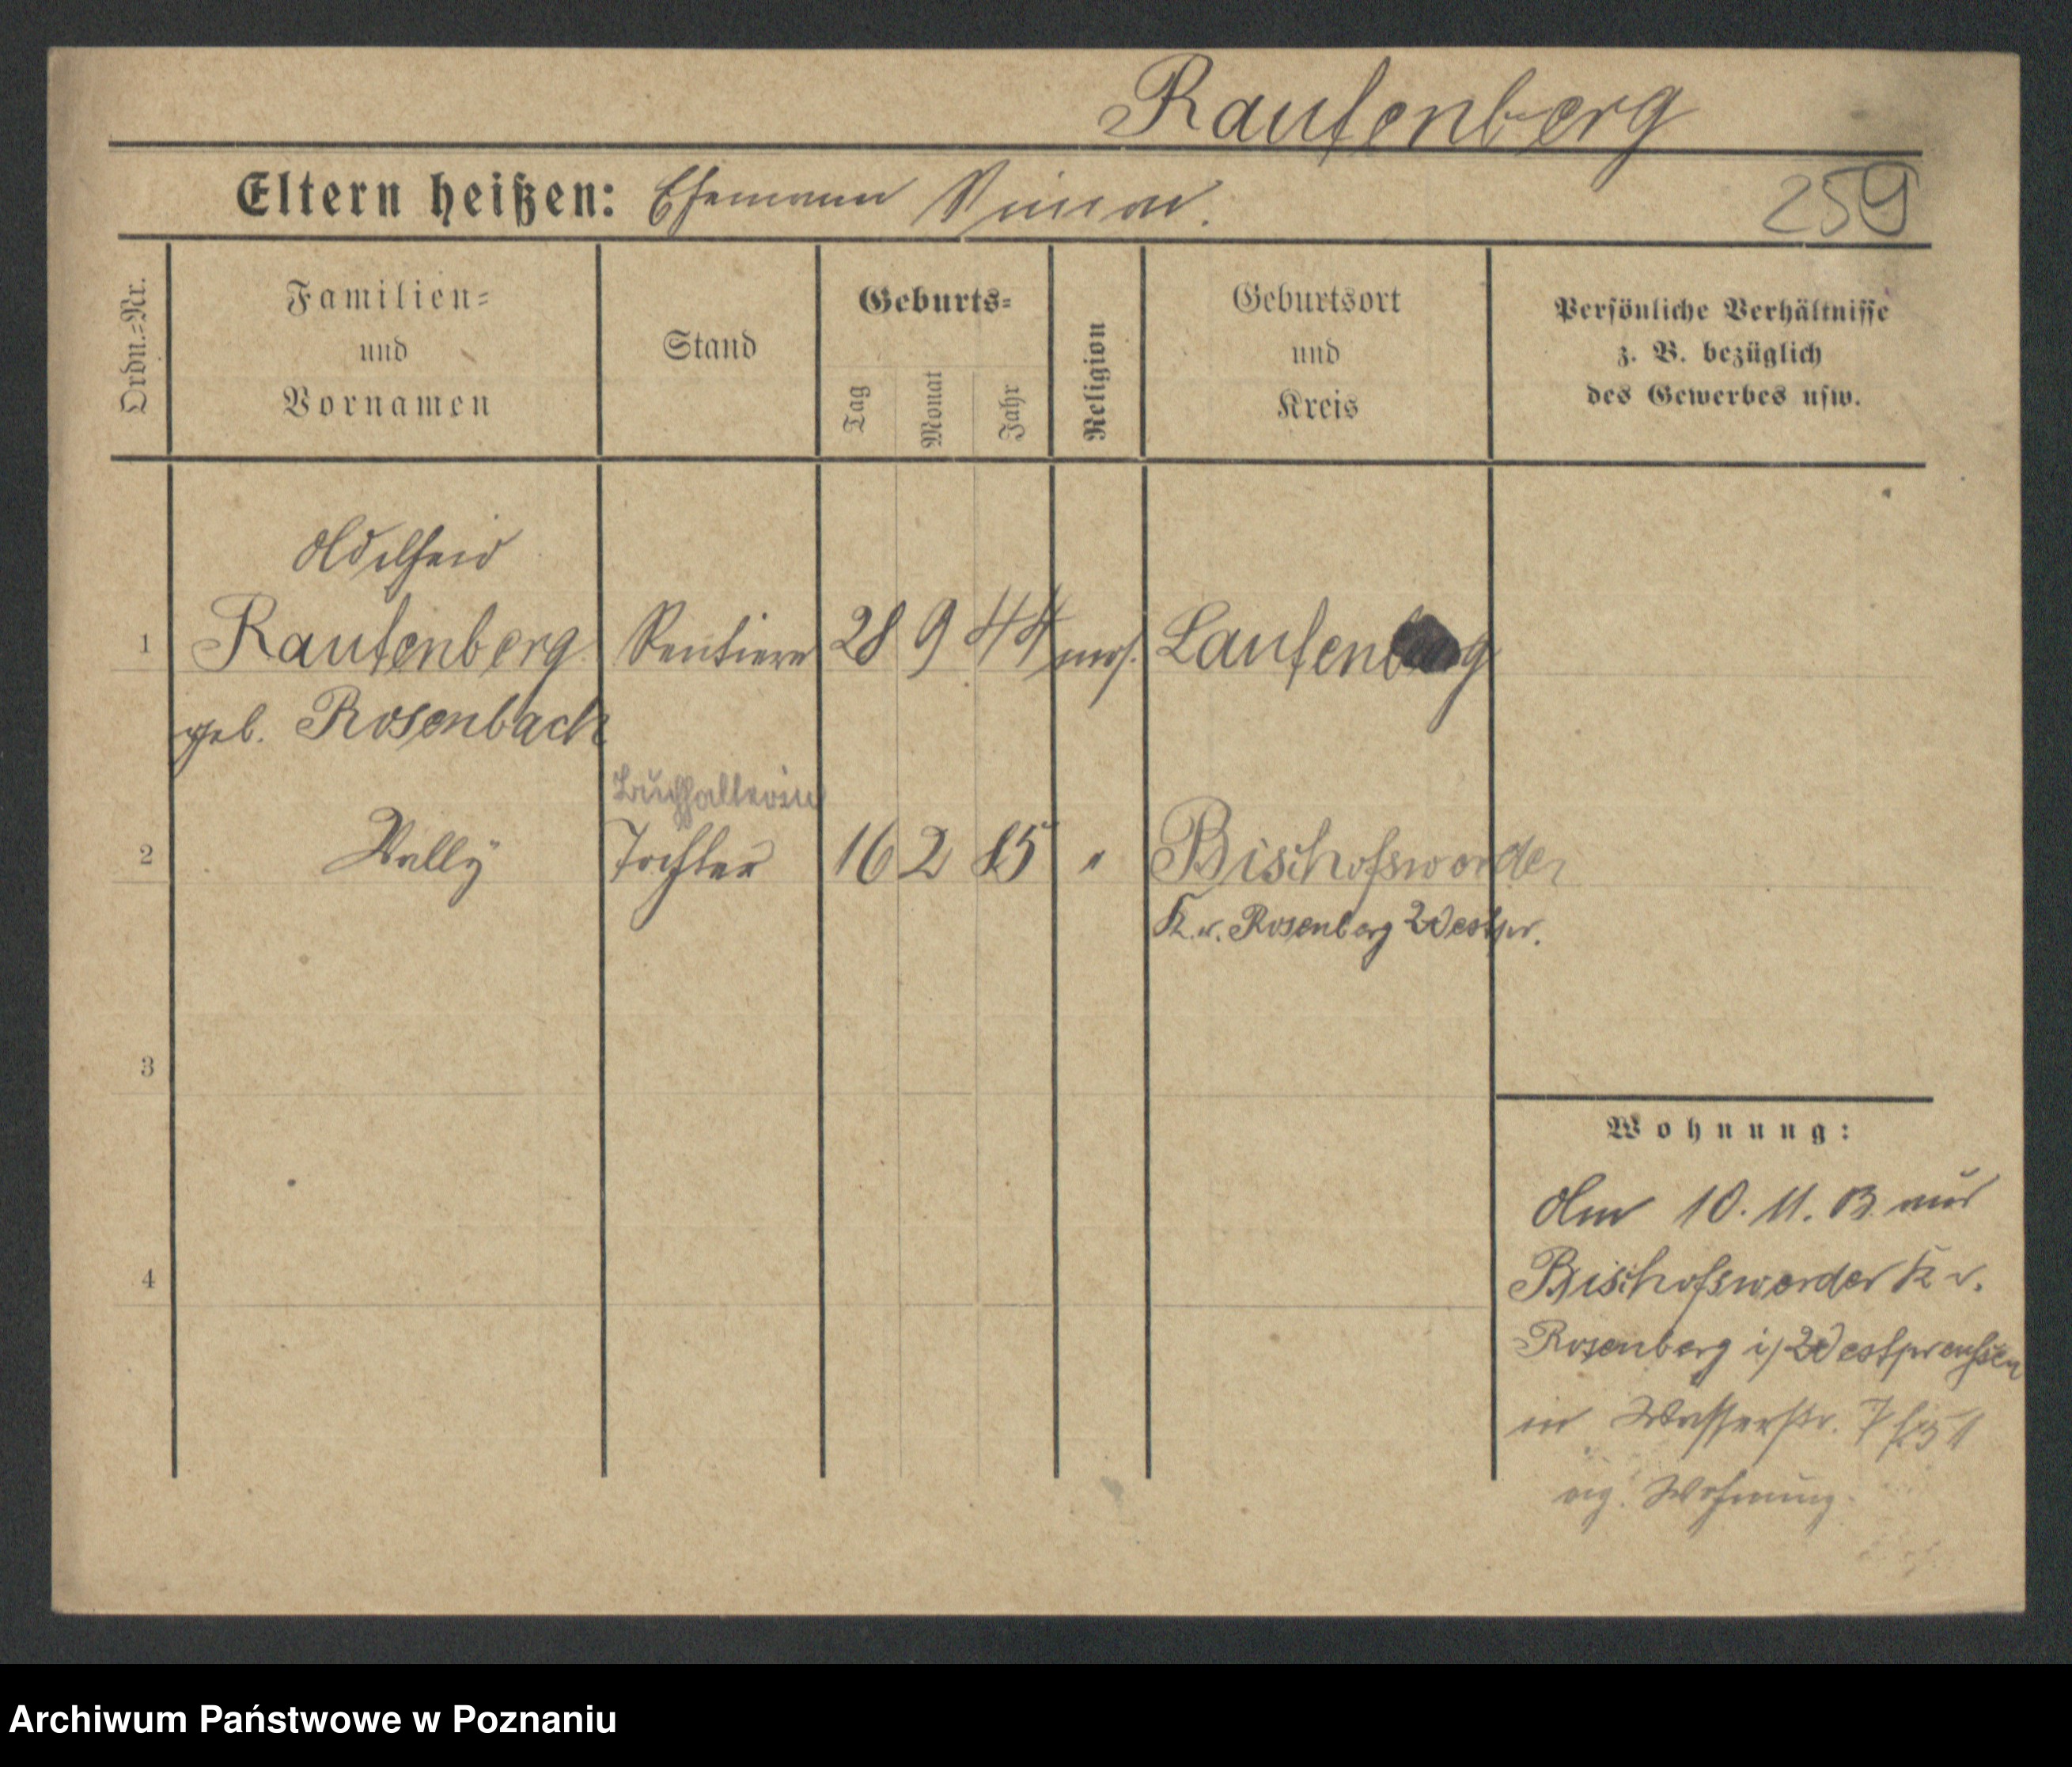 Rautenberg
Eltern heißen: Ehemann Simon.
259
Ordn.=Nr.
Familien=
und
Vornamen
Stand
Geburts=
Tag
Monat
Jahr
Religion
Geburtsort
und
Kreis
Persönliche Verhältnisse
z. B. bezüglich
des Gewerbes usw.
Adelheid
1 Rautenberg Rentiere 28 9 44 mos. Lautenburg
geb. Rosenbach
Buchhalterin
2 Wally Tochter 16 2 85 " Bischofswerder
Kr. Rosenberg Westpr.
3
4
Wohnung:
Am 10. 11. 13 aus
Bischofswerder Kr.
Rosenberg i/Westpreußen
in Wasserstr. 7
eig. Wohnung.
Archiwum Państwowe w Poznaniu